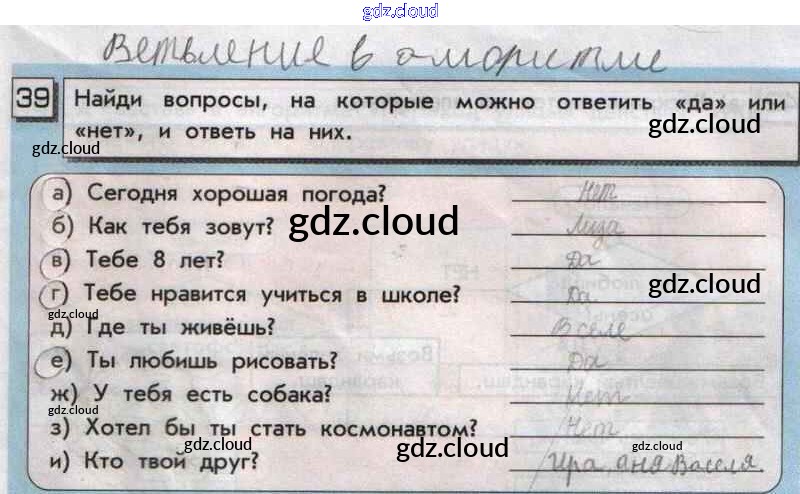 gdz.cloud
Ветвление в алгоритме
39 Найди вопросы, на которые можно ответить «да» или
«нет», и ответь на них.
gdz.cloud
gdz.cloud
а) Сегодня хорошая погода? Нет
б) Как тебя зовут? Лиза
gdz.cloud
в) Тебе 8 лет? Да
г) Тебе нравится учиться в школе? Да
gdz.cloud
gdz.cloud
д) Где ты живёшь? В селе
е) Ты любишь рисовать? Да
ж) У тебя есть собака? Нет
gdz.cloud
з) Хотел бы ты стать космонавтом? Нет
gdz.cloud
gdz.cloud
и) Кто твой друг? Ира Аня Васеля.